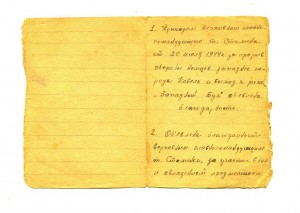 1. Приказом верховного главно-
командующего т. Сталина
от 20 июля 1944 г. за прорыв
оборони немцев западнее го-
рода Ковеля и выход к реке
Западный Буг объявлена
благодарность.
2. Объявлена благодарность
верховным главнокомандующим
т. Сталина, за участие в боях
и овладении